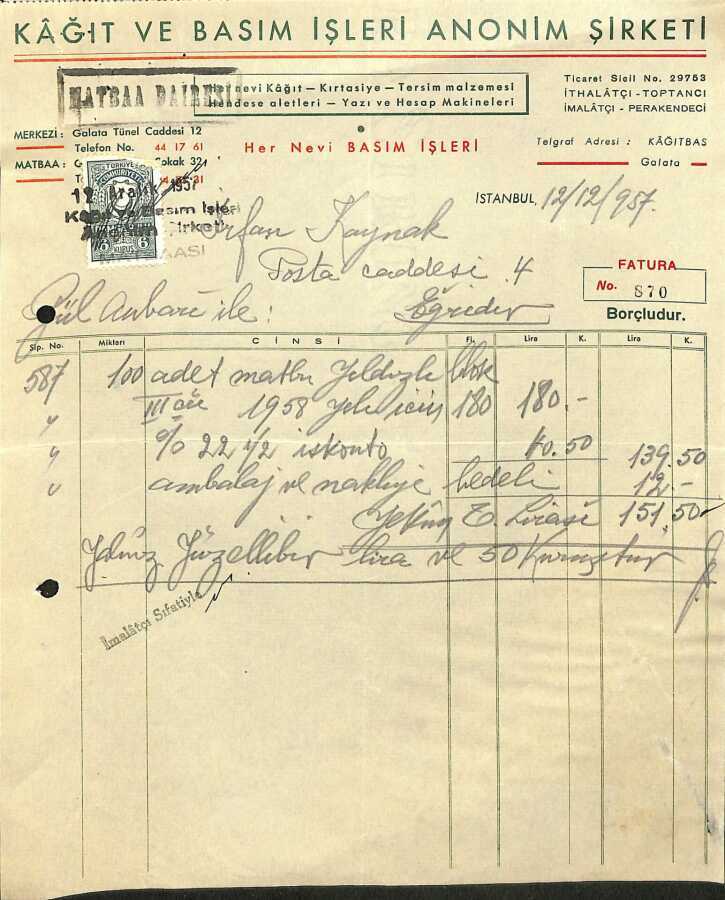 KÂĞIT VE BASIM İŞLERİ ANONİM ŞİRKETİ
MATBAA DAİRESİ
nevi Kâğıt — Kırtasiye — Tersim malzemesi
Hendese aletleri — Yazı ve Hesap Makineleri
Ticaret Sicil No. 29753
İTHALÂTÇI - TOPTANCI
İMALÂTÇI - PERAKENDECİ
MERKEZİ : Galata Tünel Caddesi 12
Telefon No. 44 17 61
MATBAA : Sokak 32
31
Her Nevi BASIM İŞLERİ
Telgraf Adresi : KÂĞITBAS
Galata
TÜRKİYE
CUMHURİYETİ
6 KURUŞ 6
12 Aralık 1957
Kâğıt ve Basım İşleri
Anonim Şirketi
İSTANBUL, 12/12/957.
İrfan Kaynak
Posta caddesi 4
Eğridir
FATURA
No. 870
Borçludur.
Gül Anbarı ile :
Sip. No. Miktarı CİNSİ Fi. Lira K. Lira K.
587 100 adet matbu Yıldızlı blok
" 1958 yılı için 180 180.-
" % 22 1/2 iskonto 40.50 139.50
" ambalaj ve nakliye bedeli 12.-
Yekûn T. Lirası 151.50
Yalnız Yüzellibir lira ve 50 Kuruştur
İmalâtçı Sıfatiyle